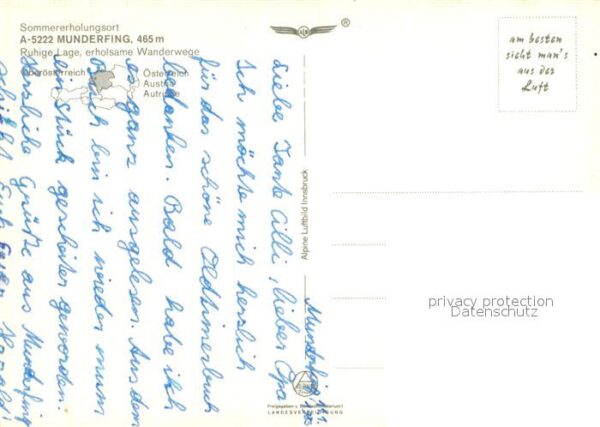 Sommererholungsort
A-5222 MUNDERFING, 465 m
Ruhige Lage, erholsame Wanderwege
Oberösterreich
Österreich
Austria
Autriche
®
am besten
sieht man's
aus der
Luft
Alpine Luftbild Innsbruck
Munderfing
Liebe Tante Cilli, lieber Opa
Ich möchte mich herzlich
für das schöne Oldtimerbuch
bedanken. Bald habe ich
es ganz ausgelesen. Aus dem
Buch bin ich wieder um
ein Stück gescheiter geworden.
Herzliche Grüße aus Munderfing
schickt Euch Euer Harald!
privacy protection
Datenschutz
LANDESVERTEIDIGUNG